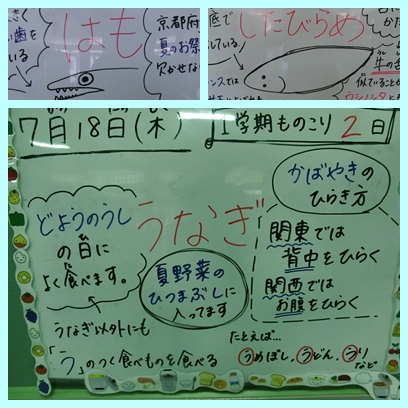 歯を
いる
はも
京都府
夏のお祭
欠かせな
底で
している
したびらめ
牛の舌
似ていることか
ウシノシタとか
7月18日(木)
1学期ものこり 2日
どようのうし
の日に
よく食べます。
うなぎ
夏野菜の
ひつまぶしに
入ってます
かばやきの
ひらき方
関東では
背中をひらく
関西では
お腹をひらく
うなぎ以外にも
「う」のつく食べものを食べる
たとえば…
うめぼし、うどん、うり
など